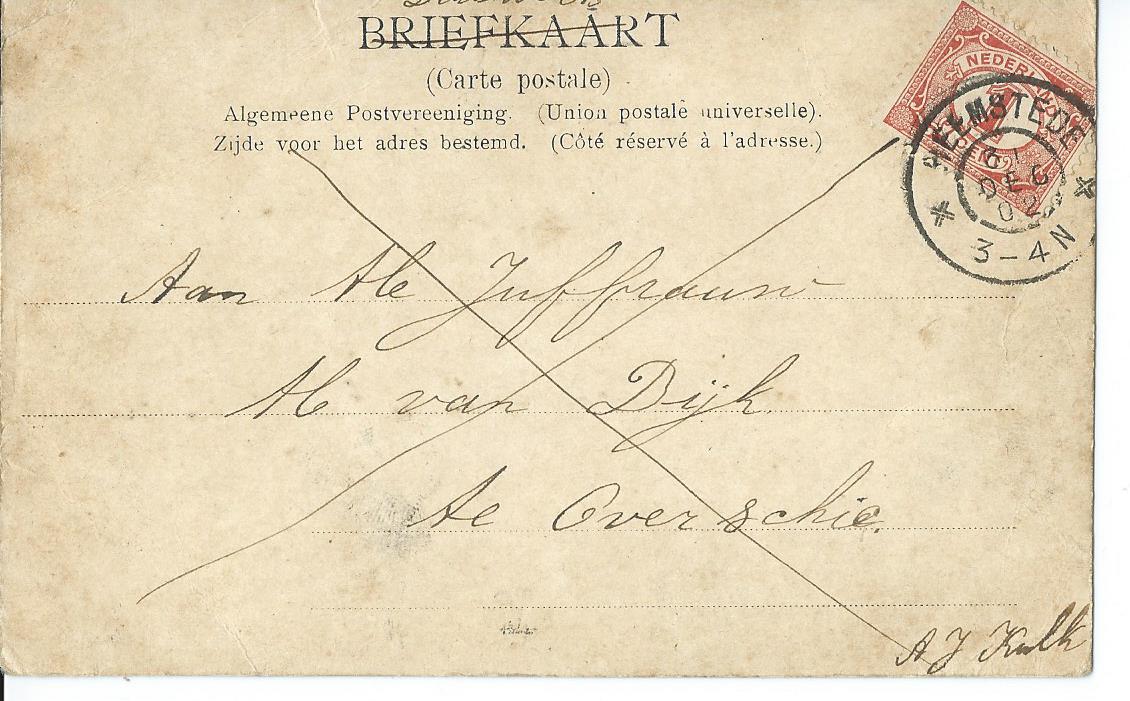 BRIEFKAART
(Carte postale)
Algemeene Postvereeniging. (Union postale universelle).
Zijde voor het adres bestemd. (Côté réservé à l'adresse.)
NEDERL
HEEMSTEDE
DEC
02
3-4 N
Aan
Juffrouw
van Dijk
te Overschie.
A J Kulk